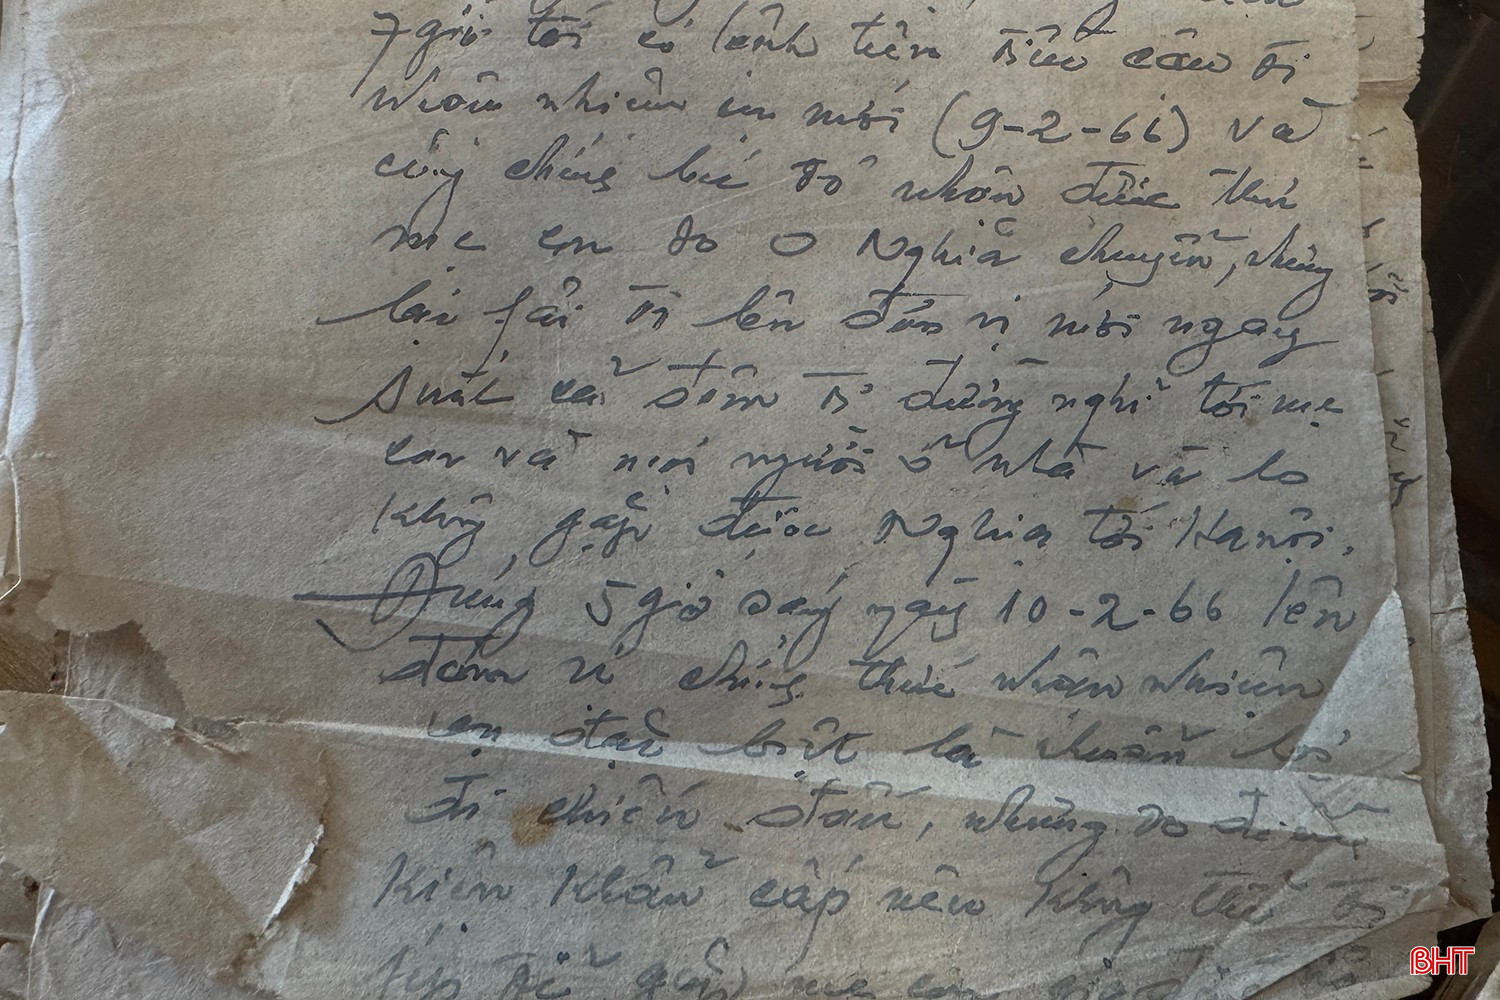 7 giờ tối có lệnh trên điều câu đi
nhận nhiệm vụ mới (9-2-66) và
cũng chính lúc đó nhận được thư
mẹ em do O Nghĩa chuyển, nhưng
lại fải đi lên đơn vị mới ngay
suất cả đêm đi đường nghĩ tới mẹ
em và mọi người ở nhà và lo
không gặp được Nghĩa tới Hanội.
Đúng 5 giờ sáng ngày 10-2-66 lên
đơn vị chính thức nhận nhiệm
vụ đặc biệt là chuẩn bị
đi chiến đấu, nhưng do điều
kiện khẩn cấp nên không thể
mẹ em
BHT